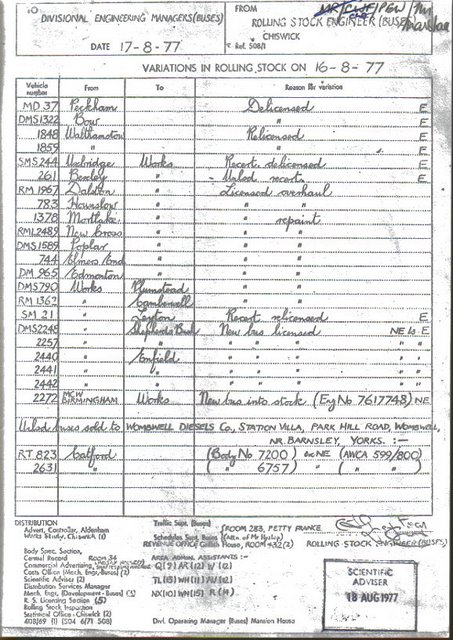 TO
DIVISIONAL ENGINEERING MANAGERS (BUSES)
DATE 17-8-77
FROM
ROLLING STOCK ENGINEER (BUSES)
CHISWICK
Ref. 508/1
VARIATIONS IN ROLLING STOCK ON 16-8-77
Vehicle number From To Reason for variation
MD 37 Peckham Delicensed E
DMS1322 Bow " E
1848 Walthamstow Relicensed E
1859 " " E
SMS 244 Uxbridge Works Recert. delicensed E
261 Bexley " Unlcd recert. E
RM 1967 Dalston " Licensed overhaul
783 Hounslow " " "
1378 Mortlake " " repaint
RML2489 New Cross " " "
DMS1589 Poplar " " "
744 Elmers End " " "
DM 965 Edmonton " " "
DMS790 Works Plumstead " "
RM 1362 " Camberwell " "
SM 21 " Leyton Recert relicensed E
DMS2248 " Shepherds Bush New bus licensed NE & E
2257 " " " " " " " "
2440 " Enfield " " " " " "
2441 " " " " " " " "
2442 " " " " " " " "
2272 MCW BIRMINGHAM Works New bus into stock (Eng No 7617748) NE
Unlcd buses sold to WOMBWELL DIESELS Co., STATION VILLA, PARK HILL ROAD, WOMBWELL,
NR. BARNSLEY, YORKS. :—
RT 823 Catford (Body No 7200) NE (AWCA 599/800)
2631 " ( " 6757) " ( " " )
DISTRIBUTION
Advert. Controller, Aldenham
Works Study, Chiswick (1)
Body Spec. Section,
Central Record ROOM 36
Commercial Advertising,
Costs Office (Mech. Eng. Buses) (2)
Scientific Adviser (2)
Distribution Services Manager
Mech. Engr. (Development - Buses) (1)
R. S. Licensing Section (5)
Rolling Stock Inspection
Sectional Office - Chiswick (2)
408/69 (1) (504 6/71 508)
Traffic Supt. (Buses)
Schedules Supt. Buses (Attn. of Mr Hyslop)
ROOM 283, PETTY FRANCE
REVENUE OFFICE Griffith House, ROOM 432 (2)
AREA ADMN. ASSISTANTS :-
Q (9) AR (12) W (12)
TL (15) WH (11) AV (12)
NX (10) WN (15) R (14)
Divl. Operating Manager (Buses) Mansion House
ROLLING STOCK ENGINEER (BUSES)
SCIENTIFIC
ADVISER
18 AUG 1977